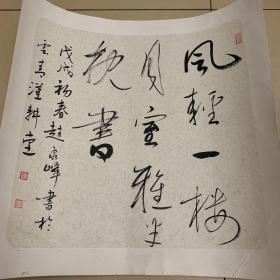 風輕一樓
月室雅半
枕書
戊戌初春趙泉峰書於
雲青漢耕堂